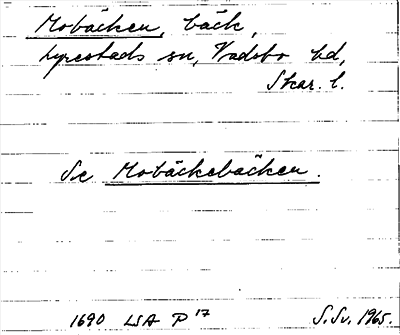 Mobäcken, bäck,
Lyrestads sn, Vadsbo hd,
Skar. l.
Se Mobäckebäcken.
1690 LSA P 17 S.Sv. 1965.